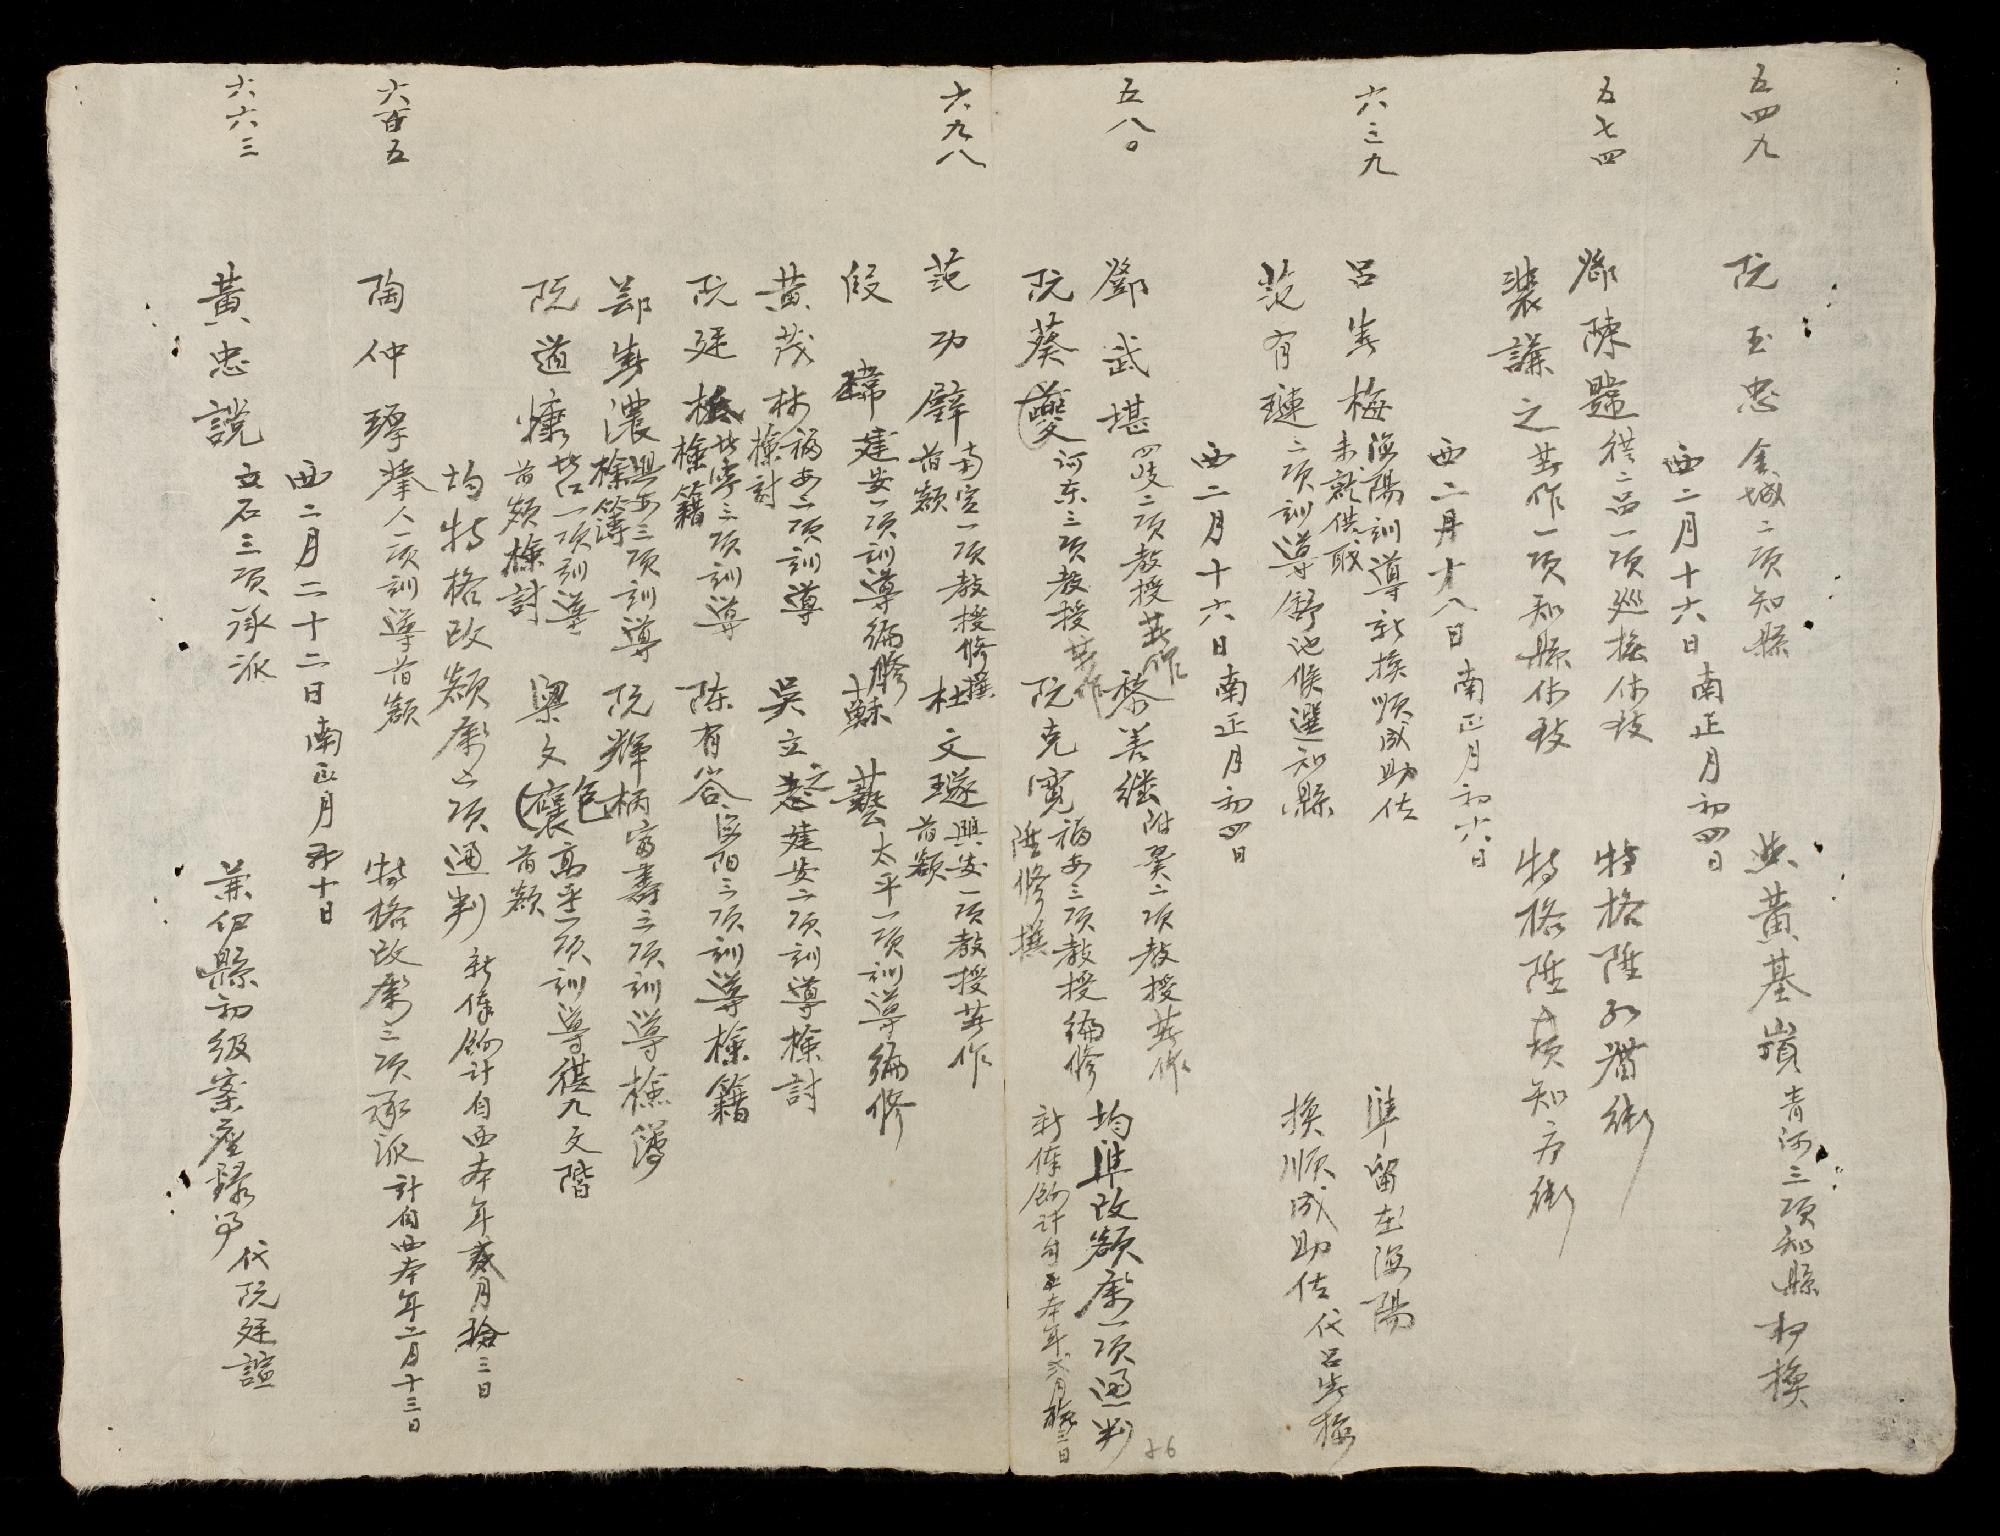 五四九
阮玉忠 金城二項知縣 黃基嶺 青河三項知縣 換
西二月十六日南正月初四日
五七四
鄧陳 從二品一項巡撫休致 特格陞 銜
裴謙之 著作一項知縣休致 特格陞 知府銜
西二月十八日南正月初六日
六三九
呂 梅 海陽訓導新換順成助佐 準留在海陽
未就供職
范有璉 二項訓導 候選知縣 換順成助佐代呂 梅
西二月十六日南正月初四日
五八〇
鄧武堪 四岐二項教授著作 黎善繼 附翼二項教授著作 均準改額 一項通判
阮葵(夔) 河东三項教授著作 阮克寬 福安三項教授編修
陞修撰
新俸餉計自西本年貳月 三日
六九八
范功 南定一項教授修撰 杜文璲 興安一項教授著作
首額 首額
段 建安一項訓導編修 蘇藝 太平一項訓導編修
黃茂林 福安二項訓導 吳立 之 建安二項訓導檢討
檢討
阮廷 北寧三項訓導 陈有容 海阳三項訓導檢籍
檢籍
鄭 濃 興安三項訓導 阮輝柄 富壽三項訓導檢簿
檢簿
阮道慷 北江一項訓導 梁文(穰)色 高平一項訓導從九文階
首額檢討 首額
均特格改額 項通判 新俸餉計自西本年貳月拾三日
六百五
陶仲 人一項訓導首額 特格改 三項承派 計自西本年二月十三日
西二月二十二日南正月初十日
六六三
黃忠說 立石三項承派 兼 縣初级案座錄事 代阮廷諠
56